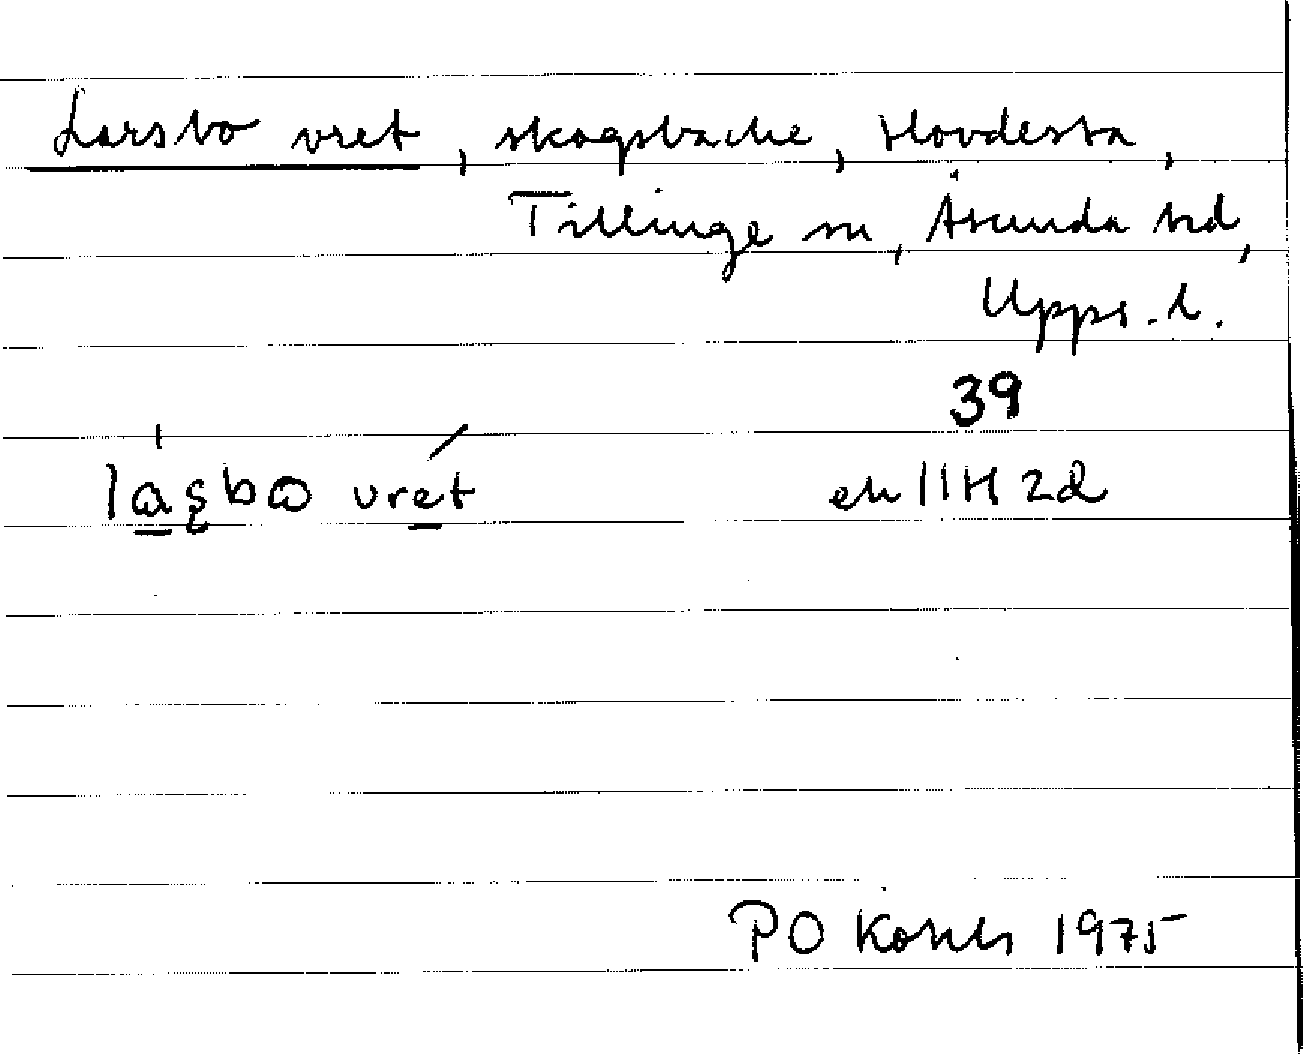 Larsbo vret, skogsbacke, Hovdesta,
Tillinge sn, Åsunda hd,
Upps. l.
39
vret ek 11H 2d
PO 1975